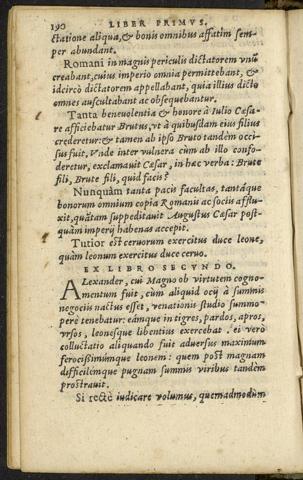 190 LIBER PRIMVS.
ctatione aliqua, & bonis omnibus affatim sem-
per abundant.
Romani in magnis periculis dictatorem vnũ
creabant, cuius imperio omnia permittebant, &
idcircò dictatorem appellabant, quia illius dictò
omnes auscultabant ac obsequebantur.
Tanta beneuolentia & honore à Iulio Cæsa-
re afficiebatur Brutus, vt à quibusdam eius filius
crederetur: & tamen ab ipso Bruto tandem occi-
sus fuit. Vnde inter vulnera cùm ab illo confo-
deretur, exclamauit Cæsar, in hæc verba: Brute
fili, Brute fili, quid facis?
Nunquàm tanta pacis facultas, tantáque
bonorum omnium copia Romanis ac sociis afflu-
xit, quãtam suppeditauit Augustus Cæsar post-
quàm imperij habenas accepit.
Tutior est ceruorum exercitus duce leone,
quàm leonum exercitus duce ceruo.
EX LIBRO SECVNDO.
ALexander, cui Magno ob virtutem cogno-
mentum fuit, cùm aliquid ocij à summis
negociis nactus esset, venationis studio summo-
pere tenebatur: eámque in tigres, pardos, apros,
vrsos, leonesque libentius exercebat. ei verò
colluctatio aliquando fuit aduersus maximum
ferocißimúmque leonem: quem post magnam
difficilémque pugnam summis viribus tandem
prostrauit.
Si rectè iudicare volumus, quemadmodùm